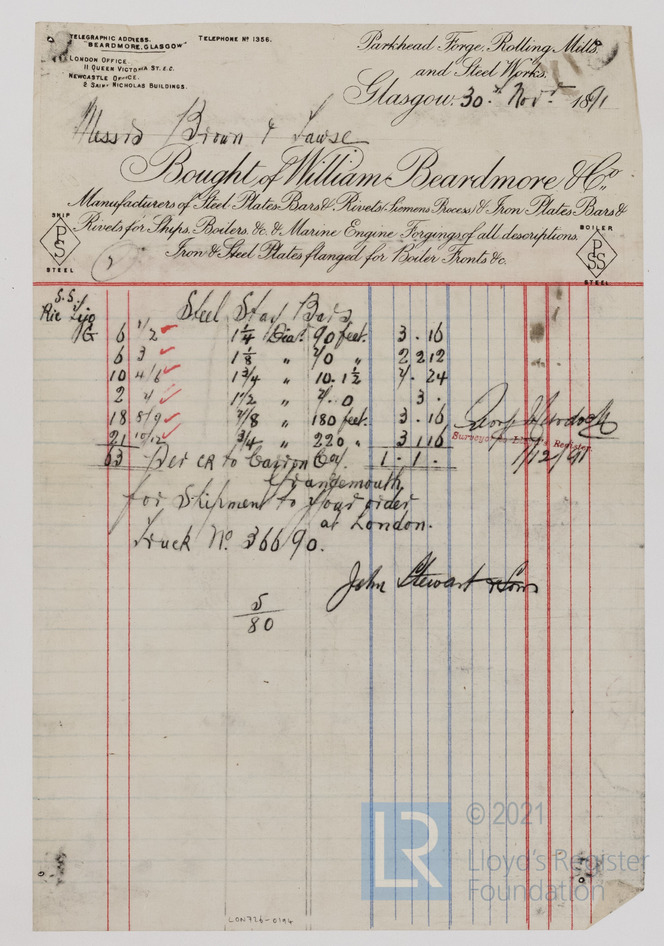 TELEGRAPHIC ADDRESS.
"BEARDMORE, GLASGOW"
TELEPHONE Nº 1356.
LONDON OFFICE.
11 QUEEN VICTORIA ST. E.C.
NEWCASTLE OFFICE.
2 SAINT NICHOLAS BUILDINGS.
Parkhead Forge, Rolling Mills,
and Steel Works,
Glasgow, 30 Novr 1891
Messrs Brown &
Bought of William Beardmore & Co.
Manufacturers of Steel Plates Bars & Rivets (Siemens Process) & Iron Plates Bars &
Rivets for Ships, Boilers, &c. & Marine Engine Forgings of all descriptions.
Iron & Steel Plates flanged for Boiler Fronts &c.
SHIP
PS
STEEL
BOILER
PSS
STEEL
S.S.
Steel Stay Bars
6 1/2 1 1/4 Diar 90 feet. 3 . 16
6 3 1 1/8 " 2/0 " 2 2 12
10 4/6 1 3/4 " 10. 1 1/2 24
2 1 1/2 " 3 .
18 8/9 7/8 " 180 feet. 3 . 16
21 10/12 3/4 " 220 " 3 1 16
63 Per CR to Carron Coy. 1 . 1 .
Grangemouth
for Shipment to your order
at London.
Truck No. 36690.
Surveyor to Lloyd's Register.
1/12/91
John Stewart & Sons
5
80
LON726-0194
LR
© 2021
Lloyd's Register
Foundation